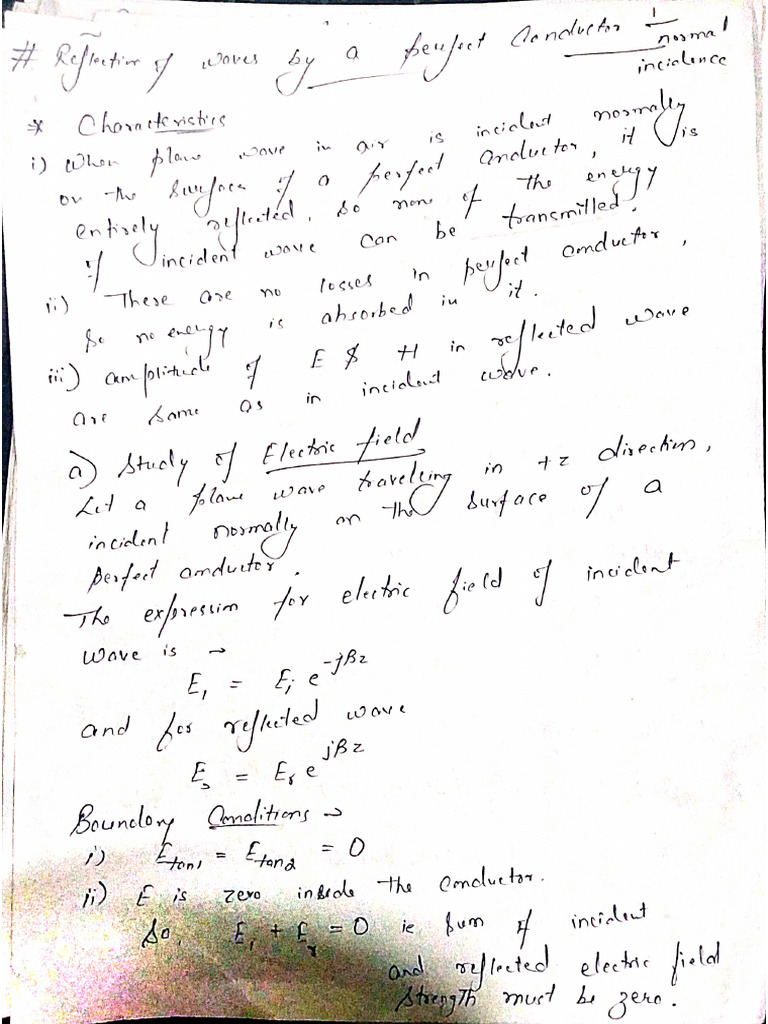 # Reflection of waves by a perfect Conductor – normal
incidence
* Characteristics
i) When plane wave in air is incident normally
on the surface of a perfect conductor, it is
entirely reflected, so none of the energy
of incident wave can be transmitted.
ii) There are no losses in perfect conductor,
So no energy is absorbed in it.
iii) amplitude of E & H in reflected wave
are same as in incident wave.
a) Study of Electric field
Let a plane wave travelling in +z direction,
incident normally on the surface of a
perfect conductor.
The expression for electric field of incident
wave is →
E₁ = Eᵢ e^-jβz
and for reflected wave
E₂ = Eᵣ e^jβz
Boundary Conditions →
i) Etan1 = Etan2 = 0
ii) E is zero inside the conductor.
So, Eᵢ + Eᵣ = 0 ie sum of incident
and reflected electric field
strength must be zero.